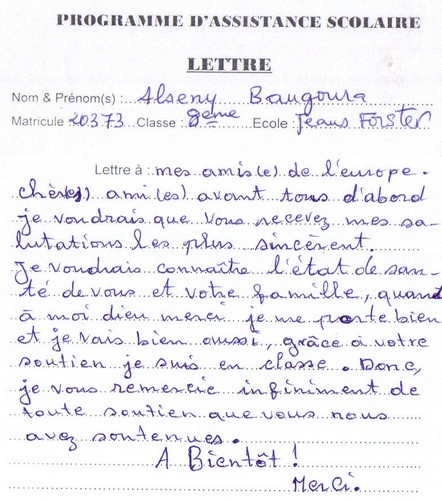 PROGRAMME D'ASSISTANCE SCOLAIRE
LETTRE
Nom & Prénom(s) : Alseny Bangoura
Matricule 20373 Classe : 8ème Ecole : Jeans Forster
Lettre à : mes amis(e) de l'europe.
chère(s) ami(es) avant tous d'abord
je voudrais que vous recevez mes sa-
lutations les plus sincèrent.
Je voudrais connaître l'état de san-
té de vous et votre famille, quand
à moi dieu merci je me porte bien
et je vais bien aussi, grâce à votre
soutien je suis en classe. Donc,
je vous remercie infiniment de
toute soutien que vous nous
avez soutenues.
A Bientôt !
Merci.